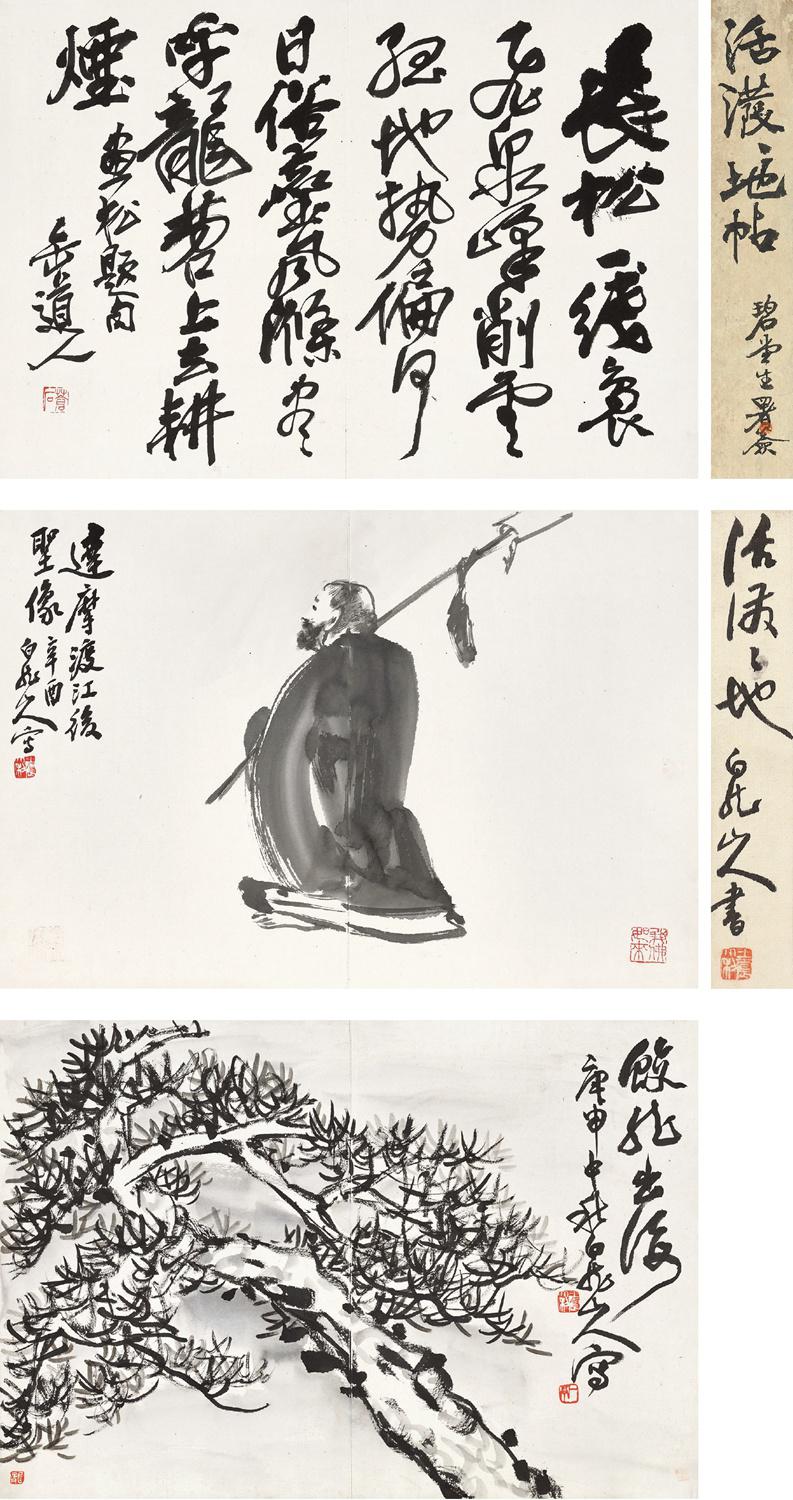 長松一綫裊
飛泉峰削雲
孤地勢偏何
日俗塵風滌盡
呼龍苕上去耕
煙
畫松題句
缶道人
活潑〻地帖
碧堂生署簽
達摩渡江後
聖像 辛酉
白龍山人寫
活潑〻地
白龍山人書
龍出
庚申中秋白龍山人寫